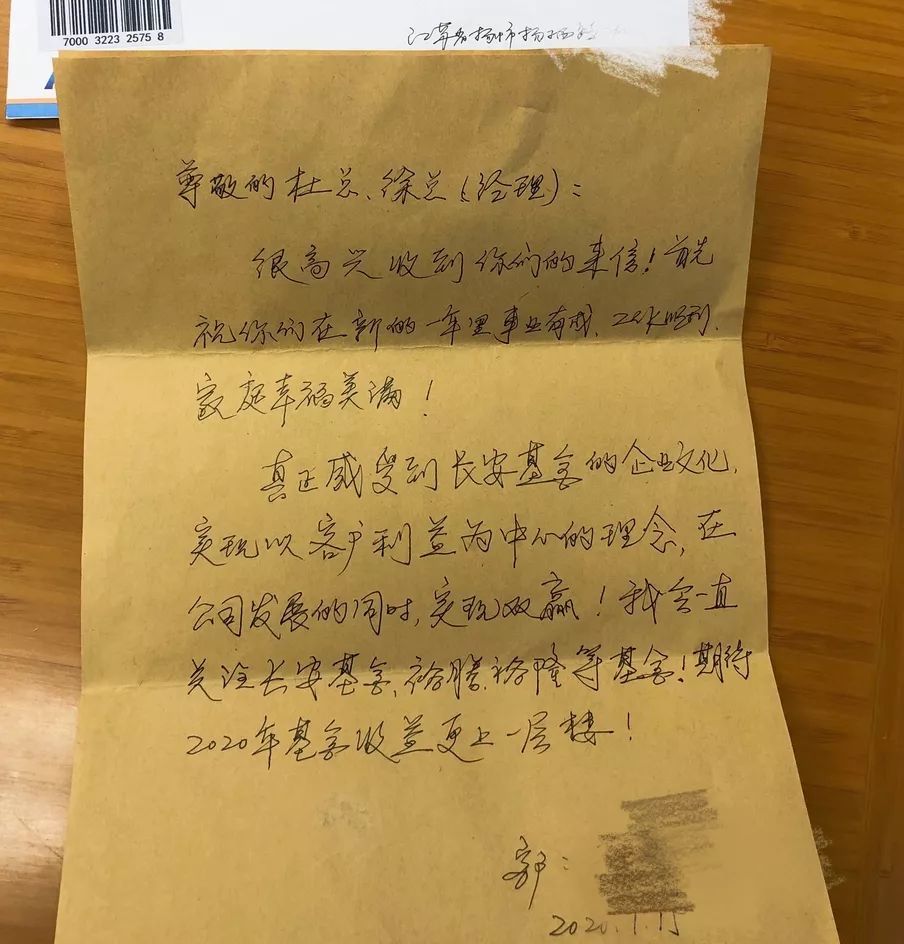 7000 3223 2575 8
江苏省扬州市
尊敬的杜总、徐总(经理):
很高兴收到你们的来信!首先
祝你们在新的一年里事业有成、工作顺利、
家庭幸福美满!
真正感受到长安基金的企业文化,
实现以客户利益为中心的理念,在
公司发展的同时,实现双赢!我会一直
关注长安基金、裕腾、裕隆等基金!期待
2020年基金收益更上一层楼!
客户:
2020.1.15